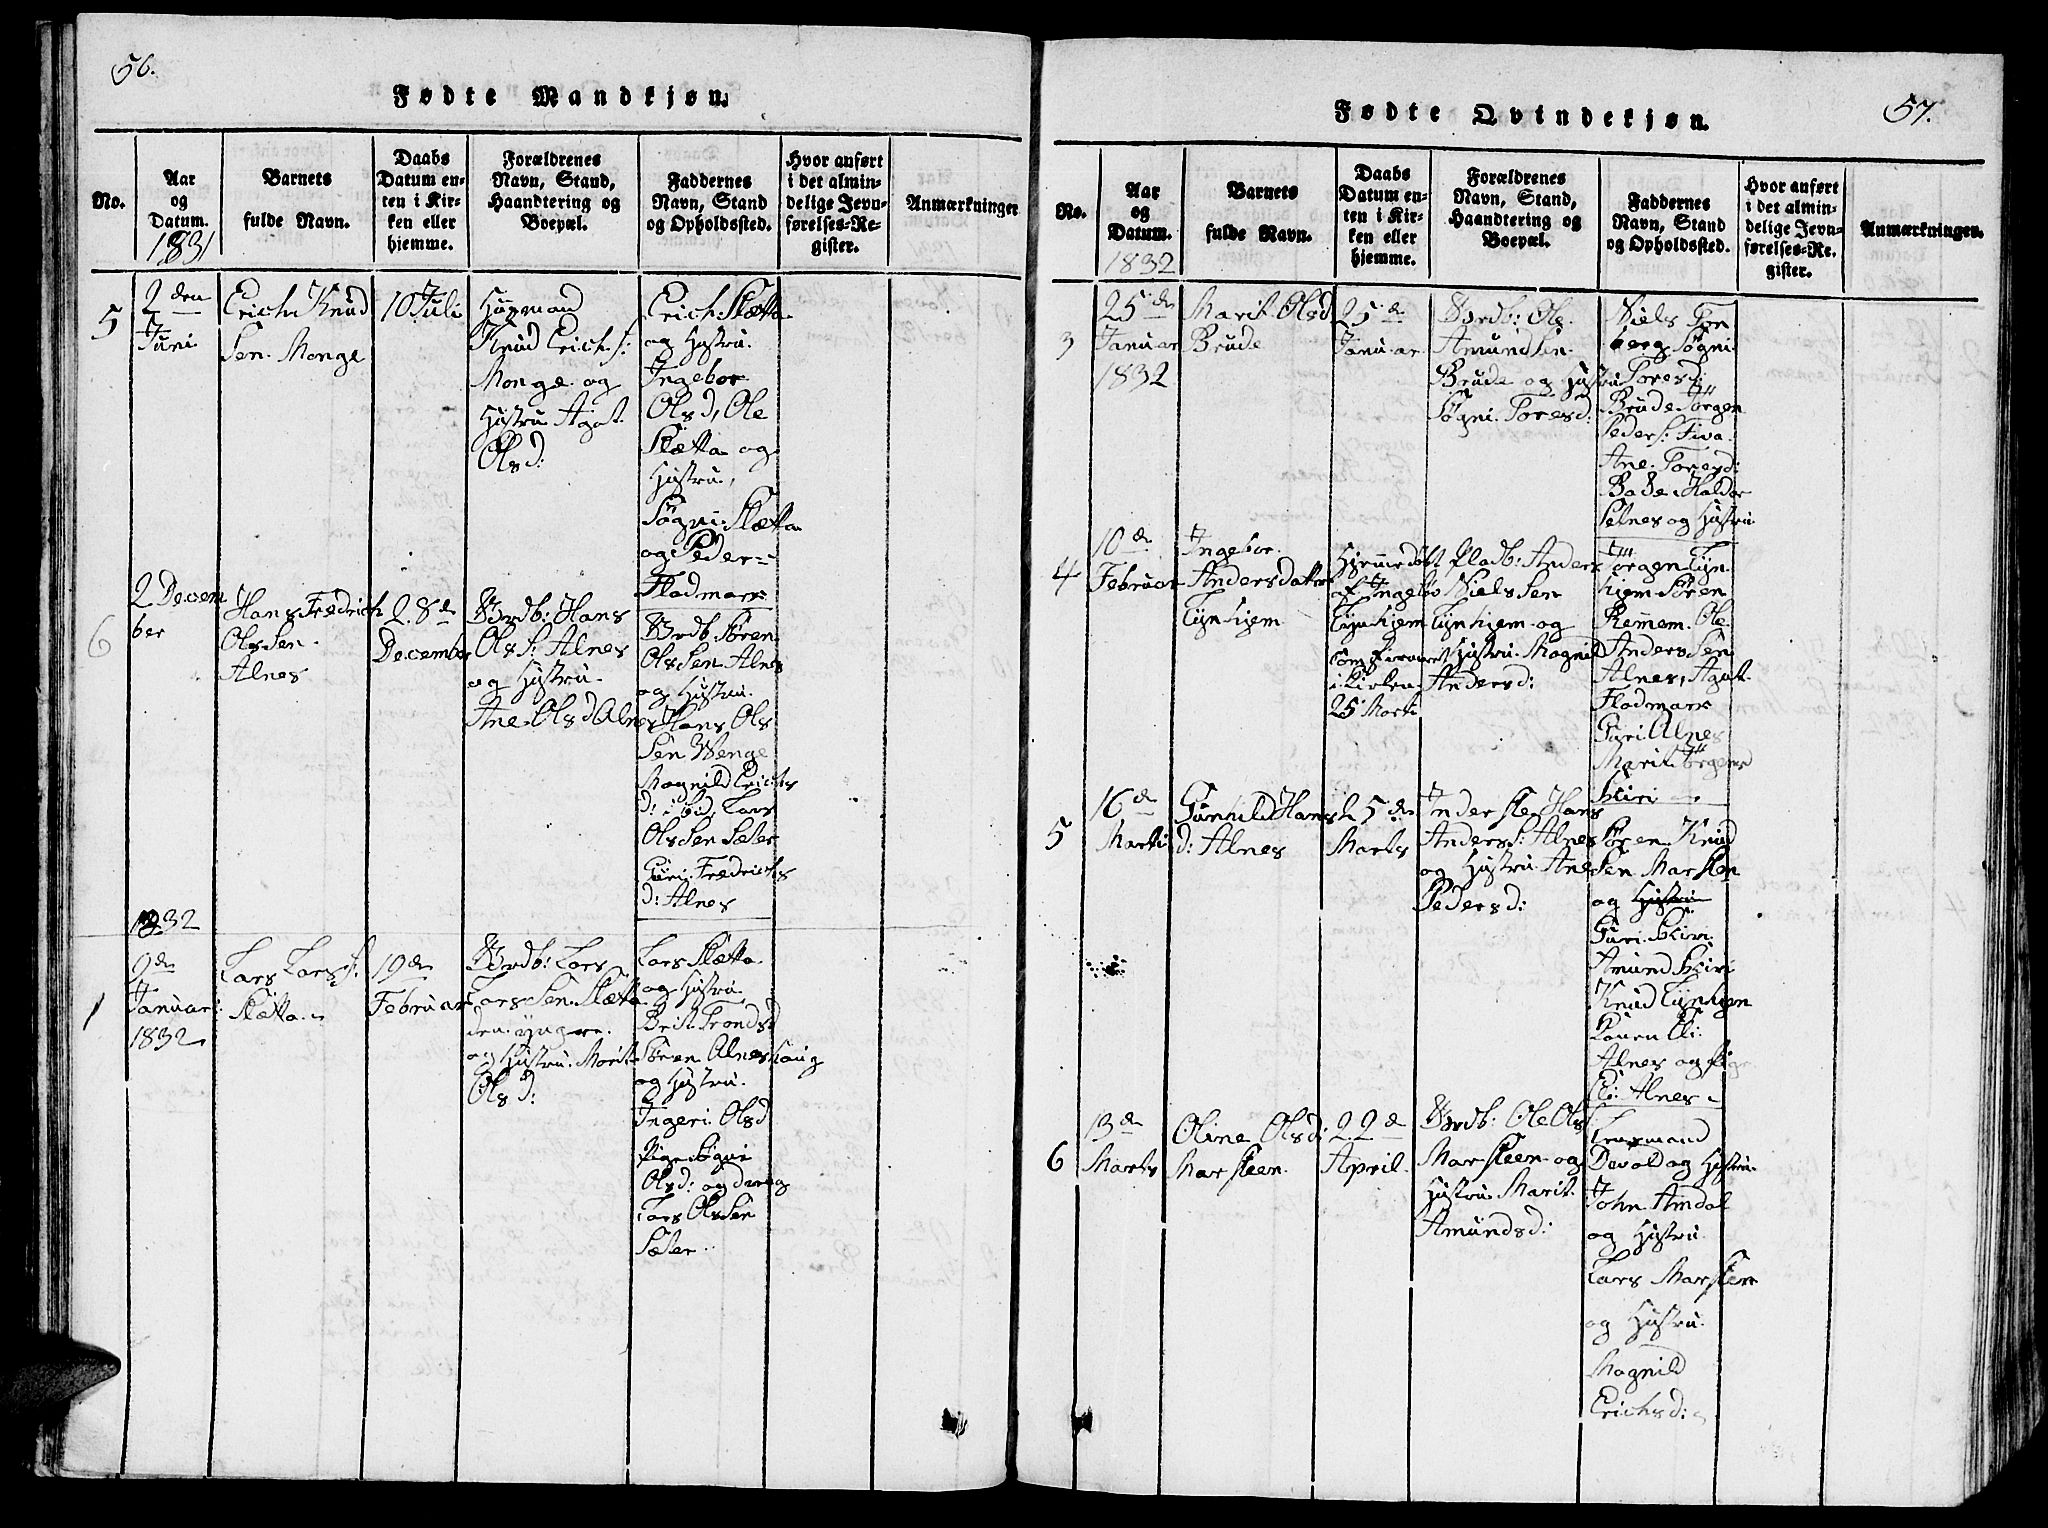 56.
Fødte Mandkjøn.
No.
Aar
og
Datum.
1831
Barnets
fulde Navn.
Daabs
Datum en-
ten i Kir-
ken eller
hjemme.
Forældrenes
Navn, Stand,
Haandtering og
Boepæl.
Faddernes
Navn, Stand
og Opholdssted.
Hvor anført
i det almin-
delige Jevn-
førelses-Re-
gister.
Anmærkninger
5
2 den
Juni
Erich Knud
Sen. Monge
10 Juli
Huusmand
Knud Erich s:
Monge og
Hustru Agat.
Olsd:
Erich Slætta
og Hustru.
Ingebor
Olsd, Ole
Slætta og
Hustru,
Søgni Slætta
og Peder
Fladmark
6
2 Decem
ber
Hans Fredrich
OlsSen.
Alnes
28 de
December
Brdb: Hans
Ols S: Alnes
og Hustru.
Ane Olsd Alnes
Brdb. Søren
OlsSen Alnes
og Hustru.
Hans Ols
Sen Wenge
Magnild Erichs
d: ibid, Lars
OlsSen Sæter
Guri Fredrichs
d: Alnes
1832
1
9 de
Januar
1832
Lars Lars s.
Slætta
19 de
Februar
Brdb: Lars
LarsSen Slætta
den yngere.
og Hustru. Marit
Olsd:
Lars Slætta
og Hustru
Brit Trondsd
Søren Alneshaug
og Hustru.
Ingeri Olsd
Pige Søgni
Olsd: og dreng
Lars OlsSen
Sæter
57.
Fødte Qvindekjøn.
No.
Aar
og
Datum.
1832
Barnets
fulde Navn.
Daabs
Datum en-
ten i Kir-
ken eller
hjemme.
Forældrenes
Navn, Stand,
Haandtering og
Boepæl.
Faddernes
Navn, Stand
og Opholdssted.
Hvor anført
i det almin-
delige Jevn-
førelses-Re-
gister.
Anmærkninger.
3
25 de
Januar
1832
Marit Olsd
Brude
25 de
Januar
Brdb: Ole
AmundSen
Brude og Hustru
Søgni Toresd:
Niels Ton
berg Søgni
Toresd:
Brude Jørgen
Peders: Fiva
Ane Toresd:
Bade Haldor
Selnes og Hustru
4
10 de
Februar
Ingebor
Andersdatter
Lynhjem
Hjemmedøbt
af Ingebor
Lynhjem
som
i Kirken
25 Marti
Pladb: Anders
NielsSen
Lynhjem og
Hustru Magnild
Andersd:
Jørgen Lyn
hjem Søren
Remem. Ole
AndersSen
Alnes, Agat.
Fladmark
Guri Alnes
Marit Jørgens
Skiri
5
16 de
Marti
Gunhild Hans
d: Alnes
25 de
Marts
Inderste Hans
Anders S: Alnes
og Hustru Ane
Pedersd:
Søren Knud
Sen Marsten
og Hustru
Guri Skiri
Amund Skiri
Knud Lynhjem
Karen Eli
Alnes og Pige
Eli Alnes
6
13 de
Marts
Oline Olsd:
Marsteen
22 de
April.
Brdb: Ole Ols
Marsteen og
Hustru Marit.
Amundsd:
Lensmand
Devold og Hustru
John Amdal
og Hustru
Lars Marsteen
og Hustru.
Magnild
Erichsd: